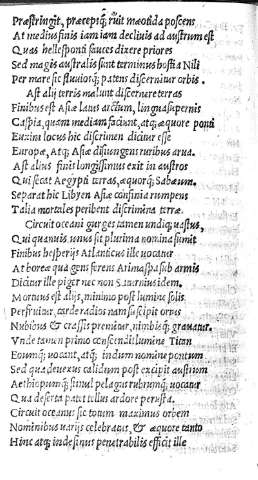 Præstringit, præceptq́; ruit mæotida poscens
At medius finis iam iam declivis ad austrum est
Quas hellesponti fauces dixere priores
Sed magis australis sunt terminus hostia Nili
Per mare sic fluuiorq́; patens discernitur orbis.
Ast alij terris malunt discernere terras
Finibus est Asiæ latus arctum, lingua supernis
Caspia, quam mediam faciunt, atq́; æquore ponti
Euxini locus hic discrimen dicitur esse
Europæ, Atq́; Asiæ disiungens ruribus arua.
Ast alius finis longissimus exit in austros
Qui secat Aegypti terras, æquorq́; Sabæum.
Separat hic Libyen Asiæ confinia rumpens
Talia mortales peribent discrimina terræ.
Circuit oceani gurges tamen undiq́; uastus,
Qui quanuis unus sit plurima nomina sumit
Finibus hesperijs Atlanticus ille uocatur
At boreæ qua gens ferens Arimaspasub armis
Dicitur ille piger nec non Saturnius idem.
Mortuus est alijs, minimo post lumine solis
Perfruitur, cardæ radios nam suscipit ortus
Nubibus & crassis premitur, nimbisq́; grauatur.
Vnde tamen primo conscendit lumine Titan
Eoumq́; uocant, atq́; indum nomine pontum
Sed qua deuexus calidum post excipit austrum
Aethiopumq́; simul pelagus rubrumq́; uocatur
Qua deserta patet tellus ardore perusta.
Circuit oceanus sic totum maximus orbem
Nominibus uarijs celebratus, & æquore tanto
Hinc atq́; inde sinus penetrabilis efficit ille